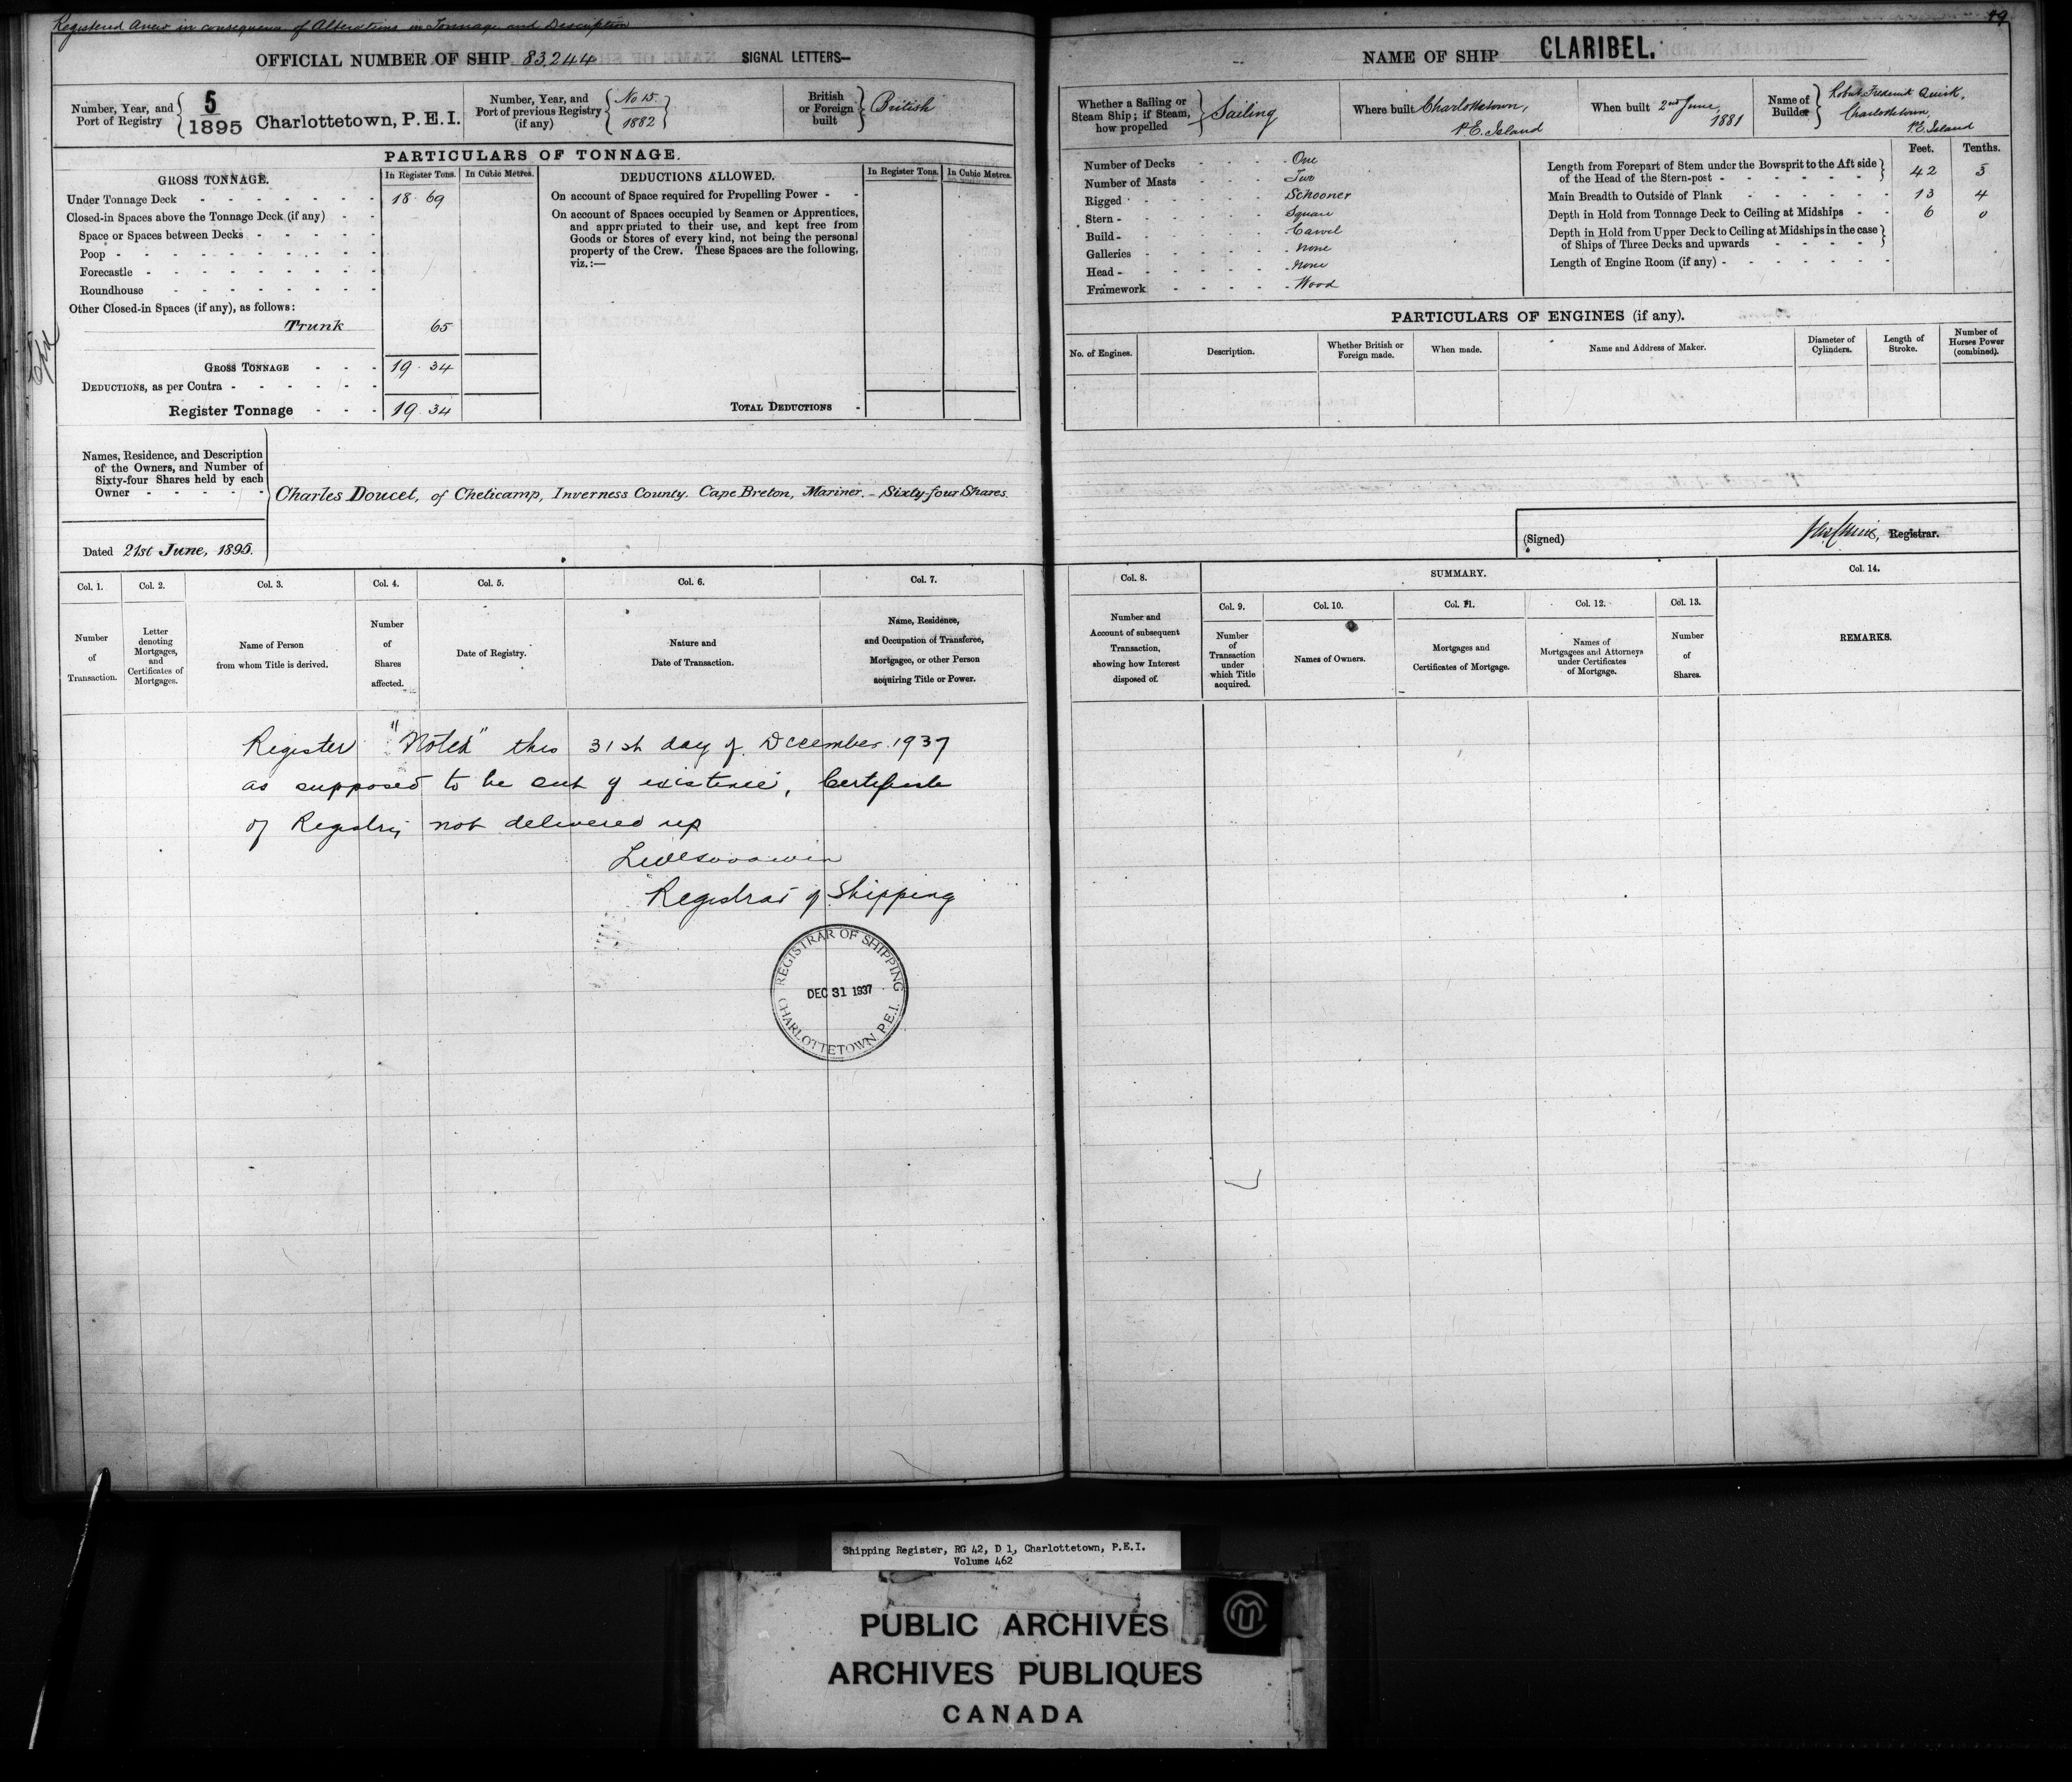 Registered Anew in consequence of Alterations in Tonnage and Description
OFFICIAL NUMBER OF SHIP 83,244 SIGNAL LETTERS—
Number, Year, and Port of Registry 5 1895 Charlottetown, P.E.I.
Number, Year, and Port of previous Registry (if any) No 15 1882
British or Foreign built British
PARTICULARS OF TONNAGE.
GROSS TONNAGE. In Register Tons. In Cubic Metres.
Under Tonnage Deck 18 69
Closed-in Spaces above the Tonnage Deck (if any)
Space or Spaces between Decks
Poop
Forecastle
Roundhouse
Other Closed-in Spaces (if any), as follows:
Trunk 65
GROSS TONNAGE 19 34
DEDUCTIONS, as per Contra
Register Tonnage 19 34
DEDUCTIONS ALLOWED. In Register Tons. In Cubic Metres.
On account of Space required for Propelling Power
On account of Spaces occupied by Seamen or Apprentices,
and appropriated to their use, and kept free from
Goods or Stores of every kind, not being the personal
property of the Crew. These Spaces are the following,
viz.:—
TOTAL DEDUCTIONS
Names, Residence, and Description
of the Owners, and Number of
Sixty-four Shares held by each
Owner
Charles Doucet, of Cheticamp, Inverness County. Cape Breton, Mariner. - Sixty-four Shares.
Dated 21st June, 1895.
Col. 1. Col. 2. Col. 3. Col. 4. Col. 5. Col. 6. Col. 7.
Number of Transaction.
Letter denoting Mortgages, and Certificates of Mortgages.
Name of Person from whom Title is derived.
Number of Shares affected.
Date of Registry.
Nature and Date of Transaction.
Name, Residence, and Occupation of Transferee, Mortgagee, or other Person acquiring Title or Power.
Register "Noted" this 31st day of December 1937
as supposed to be out of existence, Certificate
of Registry not delivered up
Registrar of Shipping
REGISTRAR OF SHIPPING
DEC 31 1937
CHARLOTTETOWN P.E.I.
49
NAME OF SHIP CLARIBEL.
Whether a Sailing or Steam Ship; if Steam, how propelled Sailing
Where built Charlottetown, P.E. Island
When built 2nd June, 1881
Name of Builder Robert Frederick Quirk, Charlottetown, P.E. Island
Number of Decks One
Number of Masts Two
Rigged Schooner
Stern Square
Build Carvel
Galleries None
Head None
Framework Wood
Feet. Tenths.
Length from Forepart of Stem under the Bowsprit to the Aft side
of the Head of the Stern-post 42 3
Main Breadth to Outside of Plank 13 4
Depth in Hold from Tonnage Deck to Ceiling at Midships 6 0
Depth in Hold from Upper Deck to Ceiling at Midships in the case
of Ships of Three Decks and upwards
Length of Engine Room (if any)
PARTICULARS OF ENGINES (if any).
No. of Engines. Description. Whether British or Foreign made. When made. Name and Address of Maker. Diameter of Cylinders. Length of Stroke. Number of Horses Power (combined).
(Signed) Registrar.
Col. 8. SUMMARY. Col. 14.
Col. 9. Col. 10. Col. 11. Col. 12. Col. 13.
Number and Account of subsequent Transaction, showing how Interest disposed of.
Number of Transaction under which Title acquired.
Names of Owners.
Mortgages and Certificates of Mortgage.
Names of Mortgagees and Attorneys under Certificates of Mortgage.
Number of Shares.
REMARKS.
Shipping Register, RG 42, D 1, Charlottetown, P.E.I.
Volume 462
PUBLIC ARCHIVES
ARCHIVES PUBLIQUES
CANADA